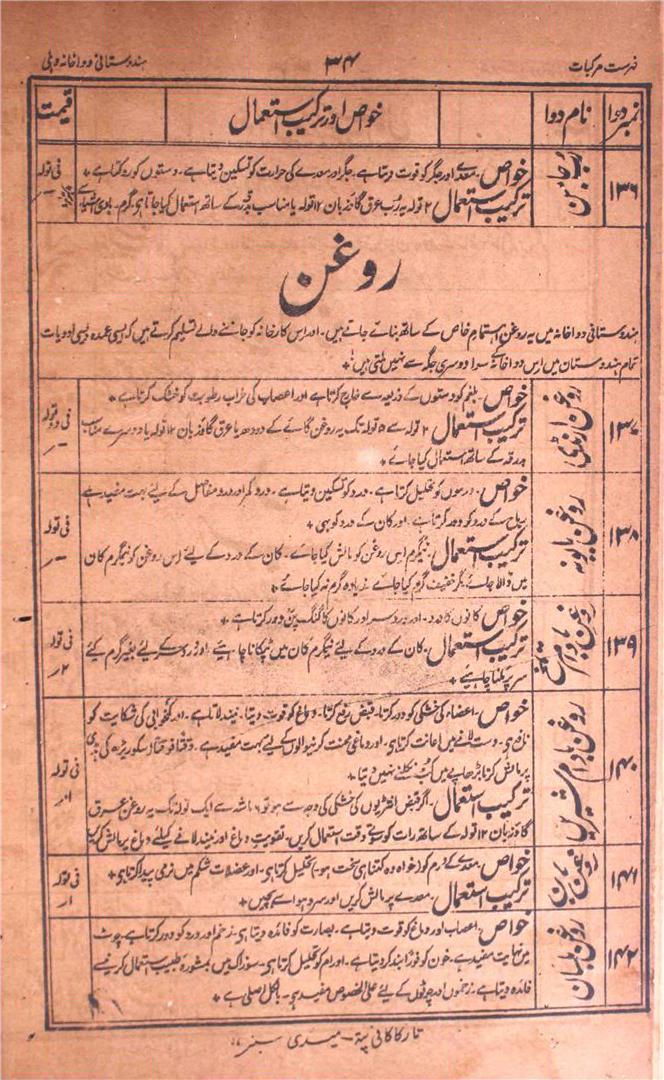 فہرست مرکبات ۳۴ ہندوستانی دواخانہ دہلی
نمبر دوا نام دوا خواص اور ترکیب استعمال قیمت
۱۳۶ رُب جامن خواص۔ معدے اور جگر کو قوت دیتا ہے۔ جگر اور معدے کی حرارت کو تسکین دیتا ہے۔ دستوں کو روکتا ہے۔ فی تولہ
ترکیب استعمال ۲ تولہ یہ رُب عرق گاؤزبان ۱۲ تولہ یا مناسب بدرقہ کے ساتھ استعمال کیا جاتا ہے۔ گرم۔ بادی اشیاء سے
روغن
ہندوستانی دواخانہ میں یہ روغن اہتمام خاص کے ساتھ بنائے جاتے ہیں۔ اور اس کارخانہ کو جاننے والے تسلیم کرتے ہیں کہ ایسی عمدہ دیسی ادویات
تمام ہندوستان میں اس دواخانے کے سوا دوسری جگہ سے نہیں ملتی ہیں؛
۱۳۷ روغن ارنڈی خواص۔ بلغم کو دستوں کے ذریعہ سے خارج کرتا ہے اور اعصاب کی خراب رطوبت کو خشک کرتا ہے۔
ترکیب استعمال۔ ۲ تولہ سے ۵ تولہ تک یہ روغن گائے کے دودھ یا عرق گاؤزبان ۱۲ تولہ یا دوسرے مناسب فی تولہ
بدرقہ کے ساتھ استعمال کیا جائے۔
۱۳۸ روغن بابونہ خواص۔ ورموں کو تحلیل کرتا ہے۔ درد کو تسکین دیتا ہے۔ درد کمر اور درد مفاصل کے لیئے بہت مفید ہے
ریاح کے درد کو دور کرتا ہے۔ اور کان کے درد کو بھی۔ فی تولہ
ترکیب استعمال۔ نیمگرم اس روغن کو مالش کیا جائے۔ کان کے درد کے لیئے اس روغن کو نیمگرم کان
میں ڈالا جائے۔ مگر خفیف گرم کیا جائے۔ زیادہ گرم نہ کیا جائے۔
۱۳۹ روغن بادام تلخ خواص۔ کانوں کا درد۔ اور درد سر اور کانوں کا گنگ پن دور کرتا ہے۔ فی تولہ
ترکیب استعمال۔ کان کے درد کے لیئے نیمگرم کان میں ٹپکانا چاہیئے۔ اور درد سر کے لیئے بغیر گرم کیئے ۲؍
سر پر ملنا چاہیئے۔
۱۴۰ روغن بادام شیریں خواص۔ اعضاء کی خشکی کو دور کرتا۔ قبض رفع کرتا۔ دماغ کو قوت دیتا۔ نیند لاتا ہے۔ اور کم خوابی کی شکایت کو
نافع ہے۔ دست لانے میں اعانت کرتا ہے۔ اور دماغی محنت کرنیوالوں کے لیے بہت مفید ہے۔ وقتاً فوقتاً اسکو ریڑھ کی ہڈی
پر مالش کرنا بڑھاپے میں کُب نکلنے نہیں دیتا۔ فی تولہ
ترکیب استعمال۔ اگر قبض انتڑیوں کی خشکی کی وجہ سے ہو تو ۶ ماشہ سے ایک تولہ تک یہ روغن عرق
گاؤزبان ۱۲ تولہ کے ساتھ رات کو سوتے وقت استعمال کریں۔ تقویت دماغ اور نیند لانے کیلئے دماغ پر مالش کریں
۱۴۱ روغن بان خواص۔ معدے کے ورم کو (خواہ وہ کتنا ہی سخت ہو) تحلیل کرتا ہے۔ اور عضلات شکم میں نرمی پیدا کرتا ہے۔ فی تولہ
ترکیب استعمال۔ معدے پر مالش کریں اور سرد ہوا سے بچیں۔ ۱؍
۱۴۲ روغن بلسان خواص۔ اعصاب اور دماغ کو قوت دیتا ہے۔ بصارت کو فائدہ دیتا ہے۔ زخم اور درد کو دور کرتا ہے۔ چوٹ
میں نہایت مفید ہے۔ خون کو فوراً بند کر دیتا ہے۔ اورام کو تحلیل کرتا ہے۔ سوزاک میں بمشورہ طبیب استعمال کرنیسے
فائدہ دیتا ہے۔ زخموں اور چوٹوں کے لیئے علی الخصوص مفید ہے۔ بالکل اصلی ہے۔
تار کا کافی پتہ۔ میڈی سنز